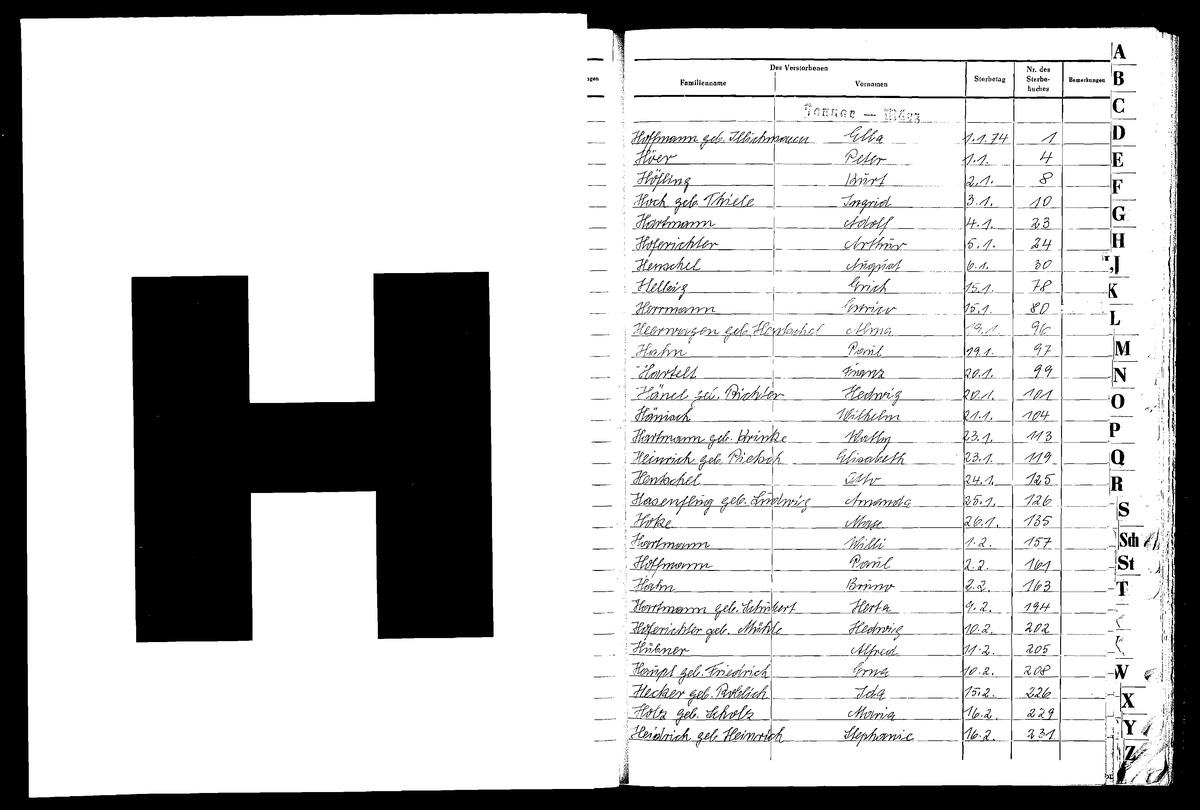 H
Des Verstorbenen
Familienname Vornamen Sterbetag Nr. des Sterbe-buches Bemerkungen
Januar — März
Hoffmann geb. Ella 1.1.74 1
Höer Peter 1.1. 4
Höfling Kurt 2.1. 8
Hoch geb. Thiele Ingrid 3.1. 10
Hartmann Adolf 4.1. 23
Hoferichter Arthur 5.1. 24
Henschel August 6.1. 30
Hellwig Erich 15.1. 78
Herrmann 15.1. 80
Heerwagen geb. Hentschel Alma 19.1. 96
Hahn Paul 19.1. 97
Hartelt Franz 20.1. 99
Hänel geb. Richter Hedwig 20.1. 101
Hänisch Wilhelm 21.1. 104
Hartmann geb. Krinke Käthy 23.1. 113
Heinrich geb. Pietsch Elisabeth 23.1. 119
Hentschel Otto 24.1. 125
Hasenfling geb. Ludwig Amanda 25.1. 126
Hoke Max 26.1. 135
Hartmann Willi 1.2. 157
Hoffmann Paul 2.2. 161
Hahn Bruno 2.2. 163
Hartmann geb. Schubert Herta 9.2. 194
Hoferichter geb. Mühle Hedwig 10.2. 202
Hübner Alfred 11.2. 205
Haupt geb. Friedrich Erna 10.2. 208
Hecker geb. Ida 15.2. 226
Holz geb. Scholz Maria 16.2. 229
Heidrich geb. Heinrich Stephanie 16.2. 231
A
B
C
D
E
F
G
H
J
K
L
M
N
O
P
Q
R
S
Sch
St
T
W
X
Y
Z